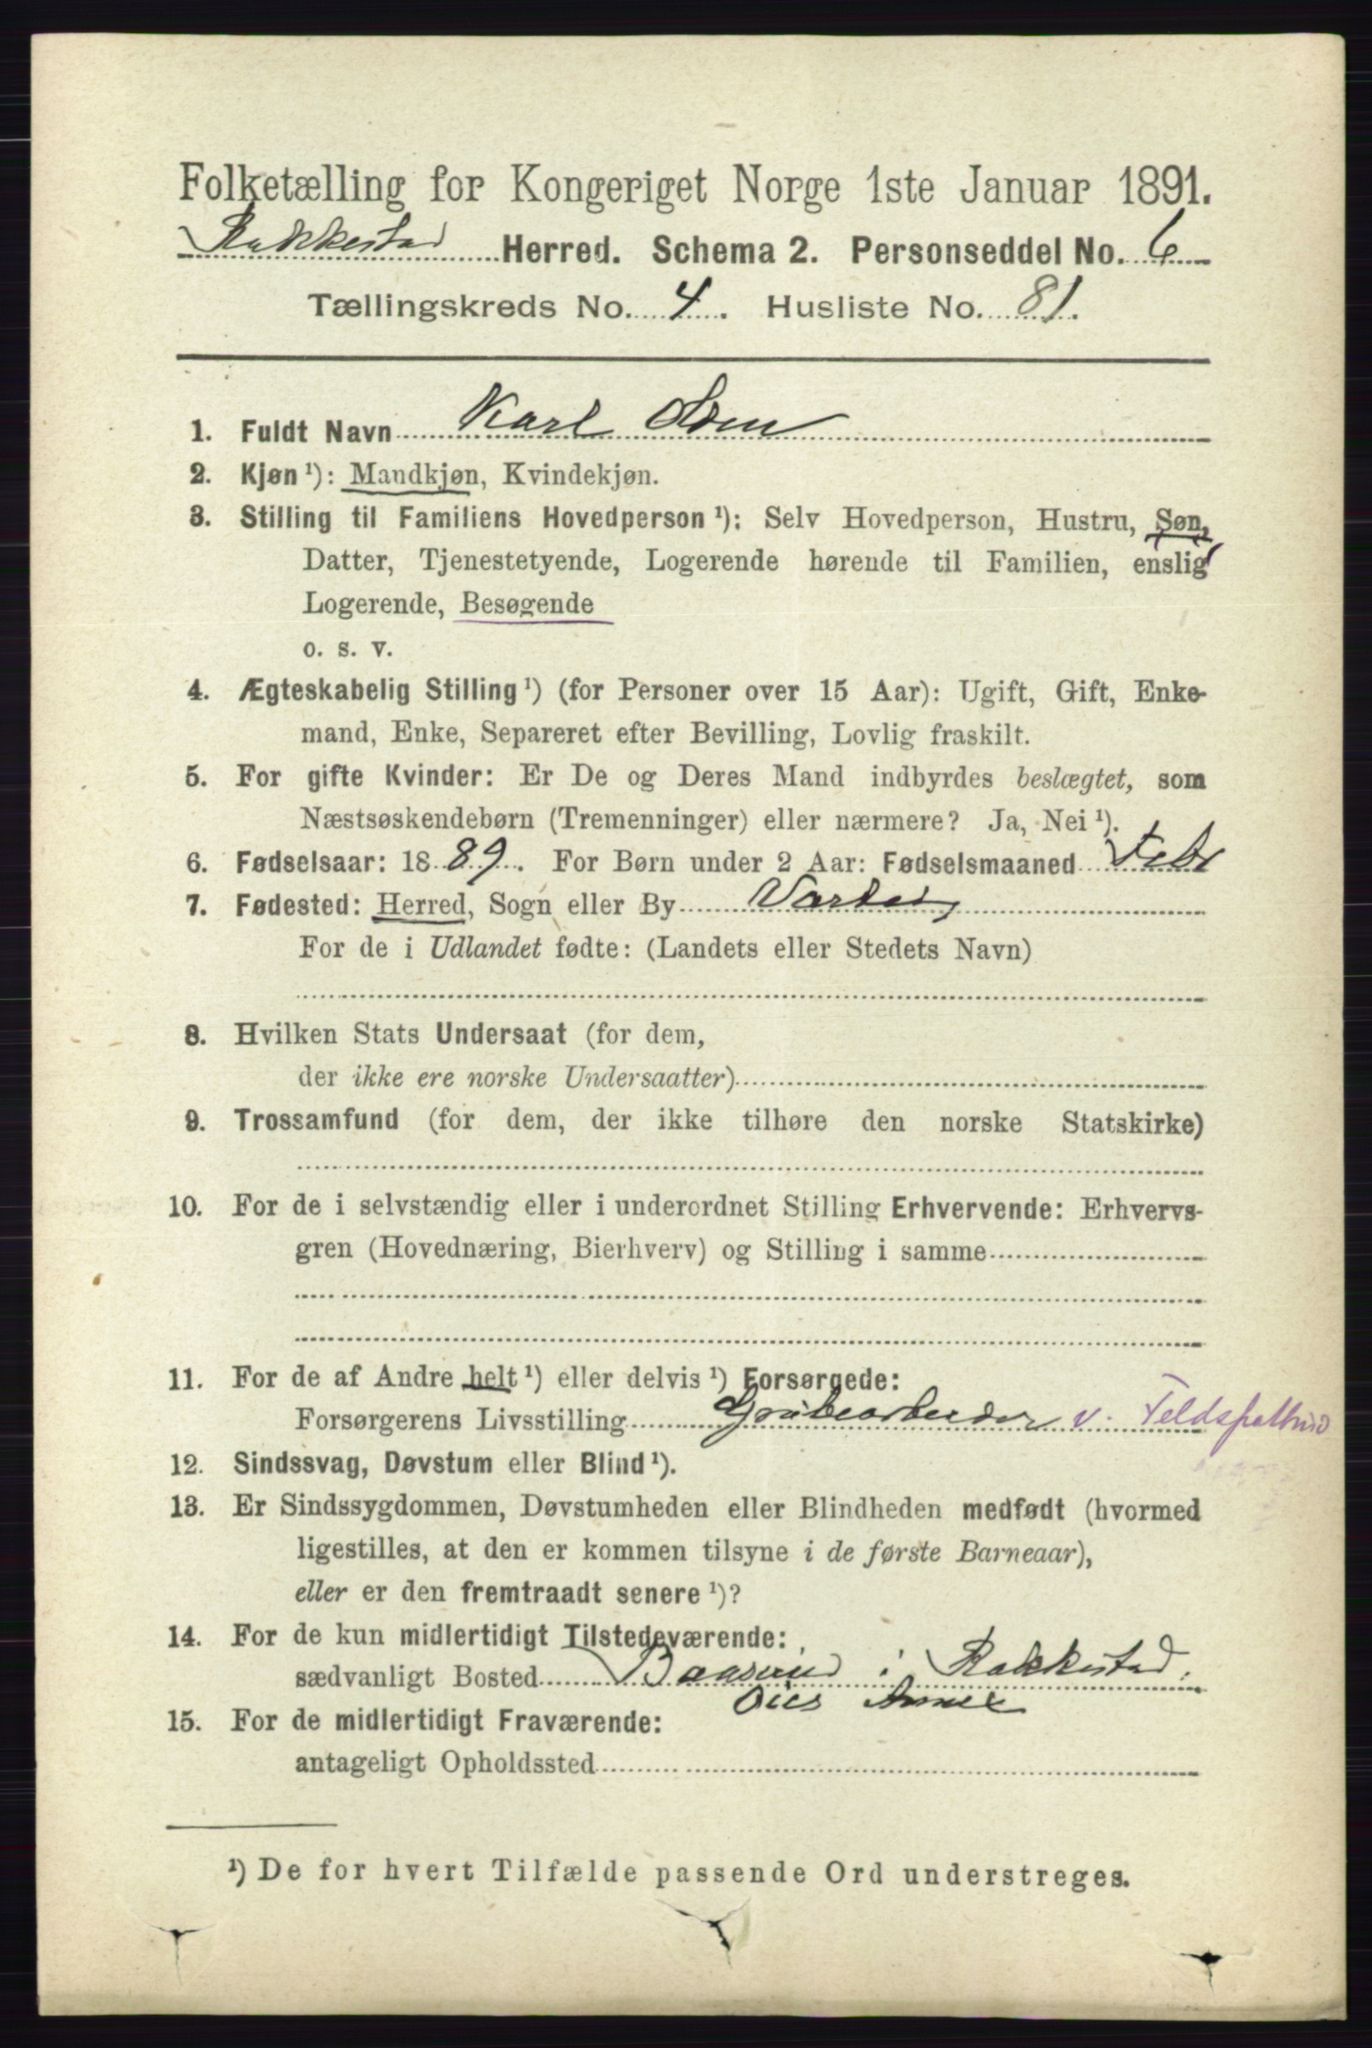 Folketælling for Kongeriget Norge 1ste Januar 1891.
Rakkestad Herred. Schema 2. Personseddel No. 6
Tællingskreds No. 4. Husliste No. 81.
1. Fuldt Navn Karl
2. Kjøn ¹): Mandkjøn, Kvindekjøn.
3. Stilling til Familiens Hovedperson ¹): Selv Hovedperson, Hustru, Søn,
Datter, Tjenestetyende, Logerende hørende til Familien, enslig
Logerende, Besøgende
o. s. v.
4. Ægteskabelig Stilling ¹) (for Personer over 15 Aar): Ugift, Gift, Enke-
mand, Enke, Separeret efter Bevilling, Lovlig fraskilt.
5. For gifte Kvinder: Er De og Deres Mand indbyrdes beslægtet, som
Næstsøskendebørn (Tremenninger) eller nærmere? Ja, Nei ¹).
6. Fødselsaar: 18 89. For Børn under 2 Aar: Fødselsmaaned Febr
7. Fødested: Herred, Sogn eller By Varteig
For de i Udlandet fødte: (Landets eller Stedets Navn)
8. Hvilken Stats Undersaat (for dem,
der ikke ere norske Undersaatter)
9. Trossamfund (for dem, der ikke tilhøre den norske Statskirke)
10. For de i selvstændig eller i underordnet Stilling Erhvervende: Erhvervs-
gren (Hovednæring, Bierhverv) og Stilling i samme
11. For de af Andre helt ¹) eller delvis ¹) Forsørgede:
Forsørgerens Livsstilling Grubearbeider v. Feldspatbrud
12. Sindssvag, Døvstum eller Blind ¹).
13. Er Sindssygdommen, Døvstumheden eller Blindheden medfødt (hvormed
ligestilles, at den er kommen tilsyne i de første Barneaar),
eller er den fremtraadt senere ¹)?
14. For de kun midlertidigt Tilstedeværende:
sædvanligt Bosted Baaserud i Rakkestad.
Annex
15. For de midlertidigt Fraværende:
antageligt Opholdssted
¹) De for hvert Tilfælde passende Ord understreges.